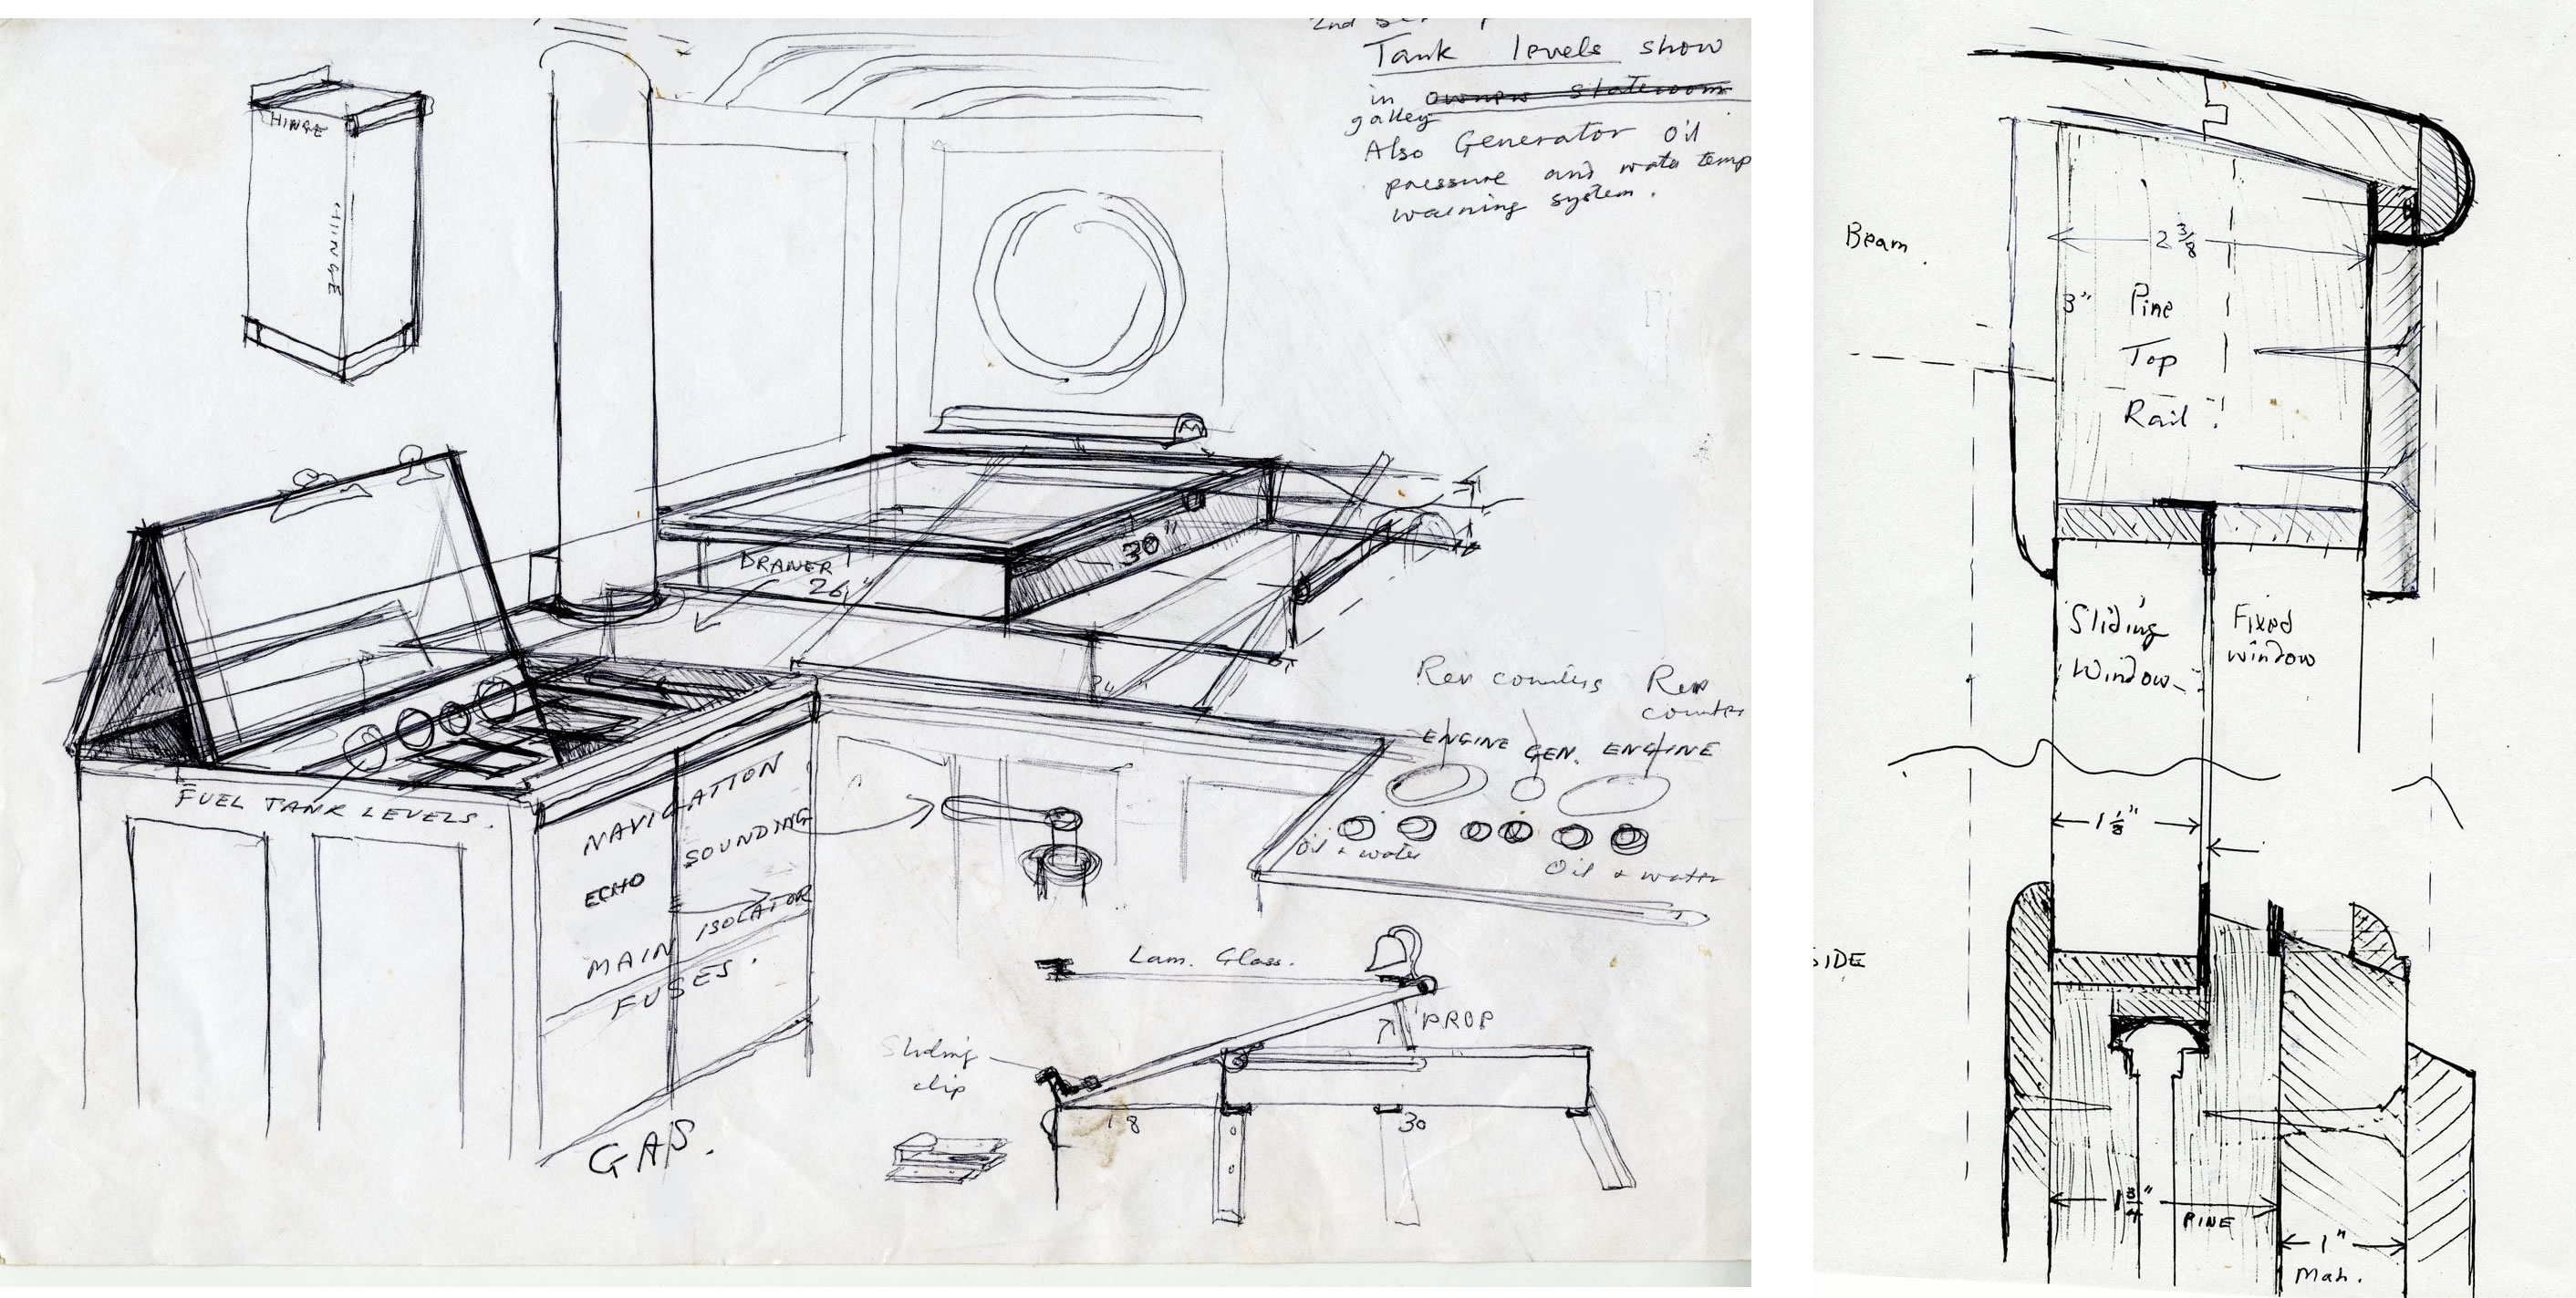 2nd
Tank levels show
in owners stateroom
galley
Also Generator Oil
pressure and water temp
warning system.
HINGE
HINGE
30"
DRAWER
26"
FUEL TANK LEVELS.
NAVIGATION
SOUNDING
ECHO
ISOLATOR
MAIN
FUSES.
GAS.
Rev counters Rev
counter
ENGINE GEN. ENGINE
Oil & water
Oil & water
Lam. Glass.
PROP
Sliding
clip
18
30
Beam.
2 3/8
3"
Pine
Top
Rail
Sliding
Window
Fixed
window
1 1/8"
SIDE
1 3/4"
PINE
1"
Mah.